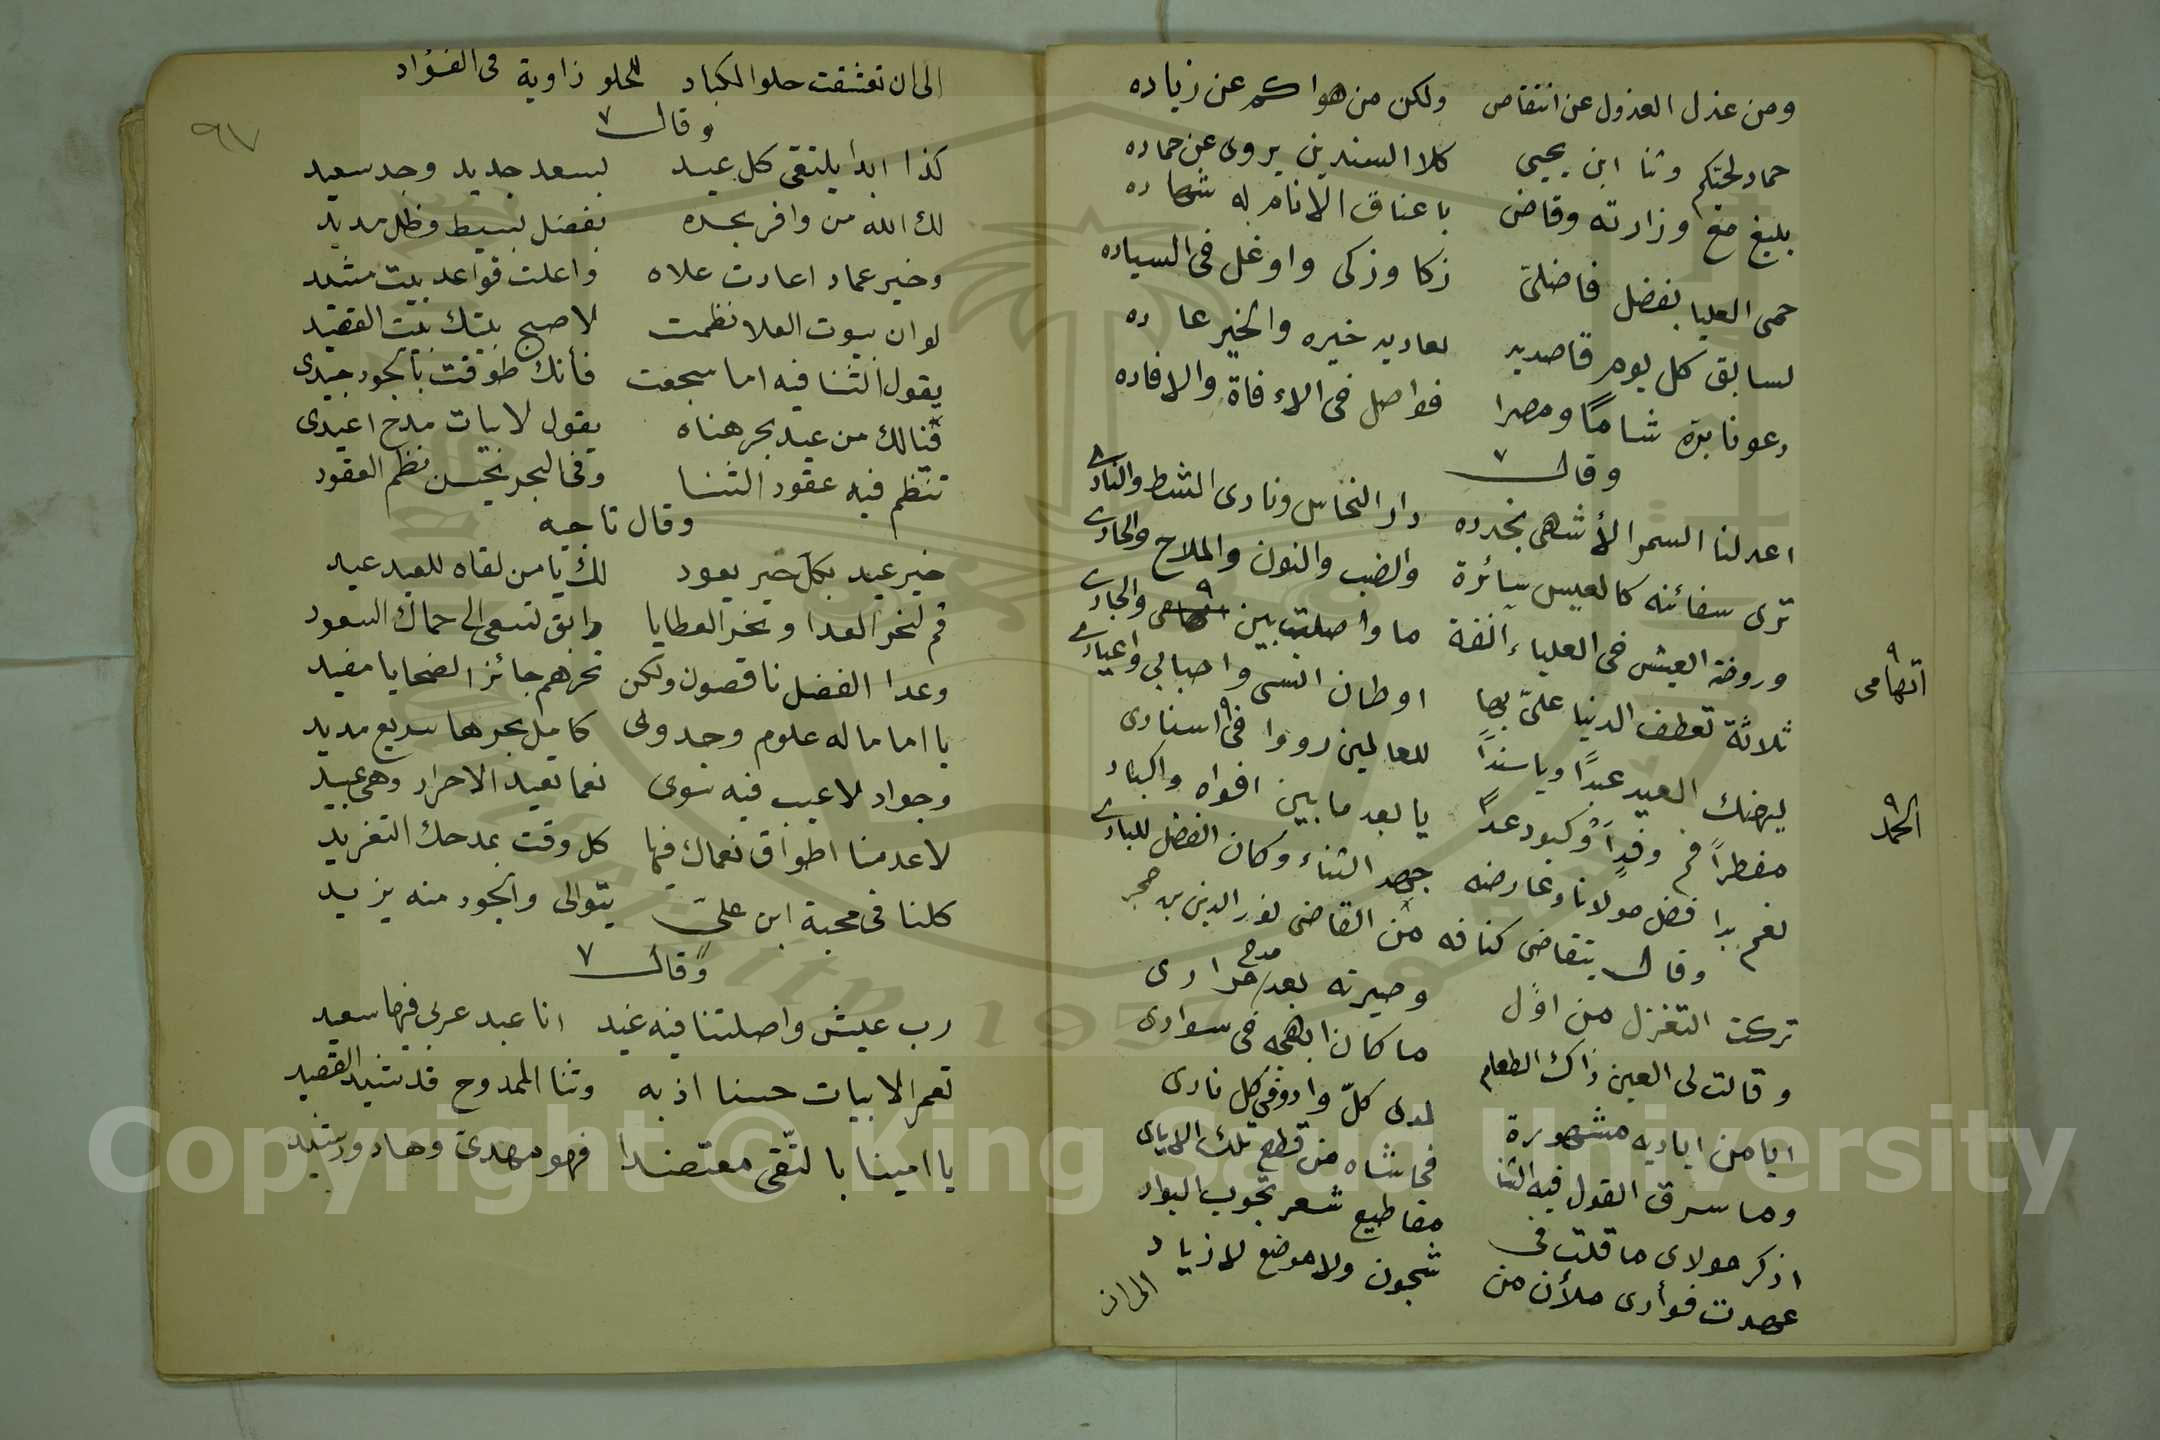 ومن عذل العذول عن انتقاص ولكن من هواكم عن زياده
حماد لحيتكم وثنا ابن يحيى كلا السندين يروى عن حماده
بليغ مع وزارته وقاض باعناق الانام له شهاده
حمى العليا بفضل فاضلىّ زكا وزكى واوغل فى السياده
لسابق كل يوم قاصديه لعاديه خيره والخير عاده
دعونا بره شامًا ومصرا فواصل فى الاءفاة والافاده
وقال
اعد لنا السمر الأشهى بخدده دار النحاس ونادى الشط والنادى
ترى سفائنه كالعيس سائرة والضب والنون والملاح والحادى
وروضة العيش فى العلياء آنفة ما واصلت بين والجادى
اتهامى
ثلاثة تعطف الدنيا علىّ بها اوطان انسى واحبابي واعيادى
ليهنك العيد عيدًا وياسندًا للعالمين رووا فى اسنادى
الحمد
مفطراً فم وفدٍ وكبود عدًا يا بعد ما بين افواه واكباد
نعم بدا فضل مولانا وعارضه جهد الثناء وكان الفضل للبادى
وقال يتقاضى كنافه من القاضى نور الدين بن حجر
تركت التغزل من اوّل وصيرته بعد مدح مرادى
وقالت لى العين ذاك الطعام ما كان ابهجه فى سوادى
ايا من اياديه مشهورة لدى كلّ واد وفى كل نادى
وما سرق القول فيه الثنا فحاشاه من قطع تلك الايادى
اذكر مولاى ما قلت فى مقاطيع شعر تجوب البواد
عهدت فوأدى ملأن من شجون ولا موضع لازياد
الى ان
٩٧
الى ان تعشقت حلو الكباد للحلو زاوية فى الفؤاد
وقال
كذا ابدا يلتقى كل عيد بسعد جديد وجد سعيد
لك الله من وافر بجده بفضل بسيط وظل مديد
وخير عماد اعادت علاه واعلت قواعد بيت مشيد
لو ان بيوت العلا نظمت لاصبح بيتك بيت القصيد
يقول الثنا فيه اما سجعت فأنك طوقت بالجود جيدى
فيالك من عيد بحر هناه يقول لابيات مدح اعيدى
تنظم فيه عقود الثنا وفى البحر يحسن نظم العقود
وقال تاجيه
خير عيد بكل خير يعود لك يا من لقاه للعيد عيد
قم لنحر العدا ونحر العطايا وابق تسعى الى حماك السعود
وعدا الفضل ناقصون ولكن نحرهم جائز الضحايا مفيد
يا اماما له علوم وجدوى كامل بحرها سريع مديد
وجواد لا عيب فيه سوى نعما تعيد الاحرار وهى عبيد
لا عدمنا اطواق نعماك فيها كل وقت بمدحك التغريد
كلنا فى محبة ابن علىّ يتوالى والجود منه يزيد
وقال
رب عيش واصلتنا فيه غيد انا عبد عربى فيها سعيد
تعمر الابيات حسنا اذ به وثنا الممدوح قد شيد القصيد
يا امينا بالتّقى معتضدا فهو مهدىّ وهاد ورشيد
Copyright © King Saud University
1957